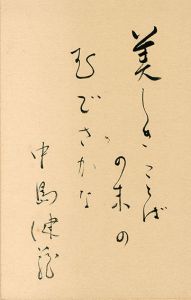 美しきことば
の末の
むごさかな
中島健蔵